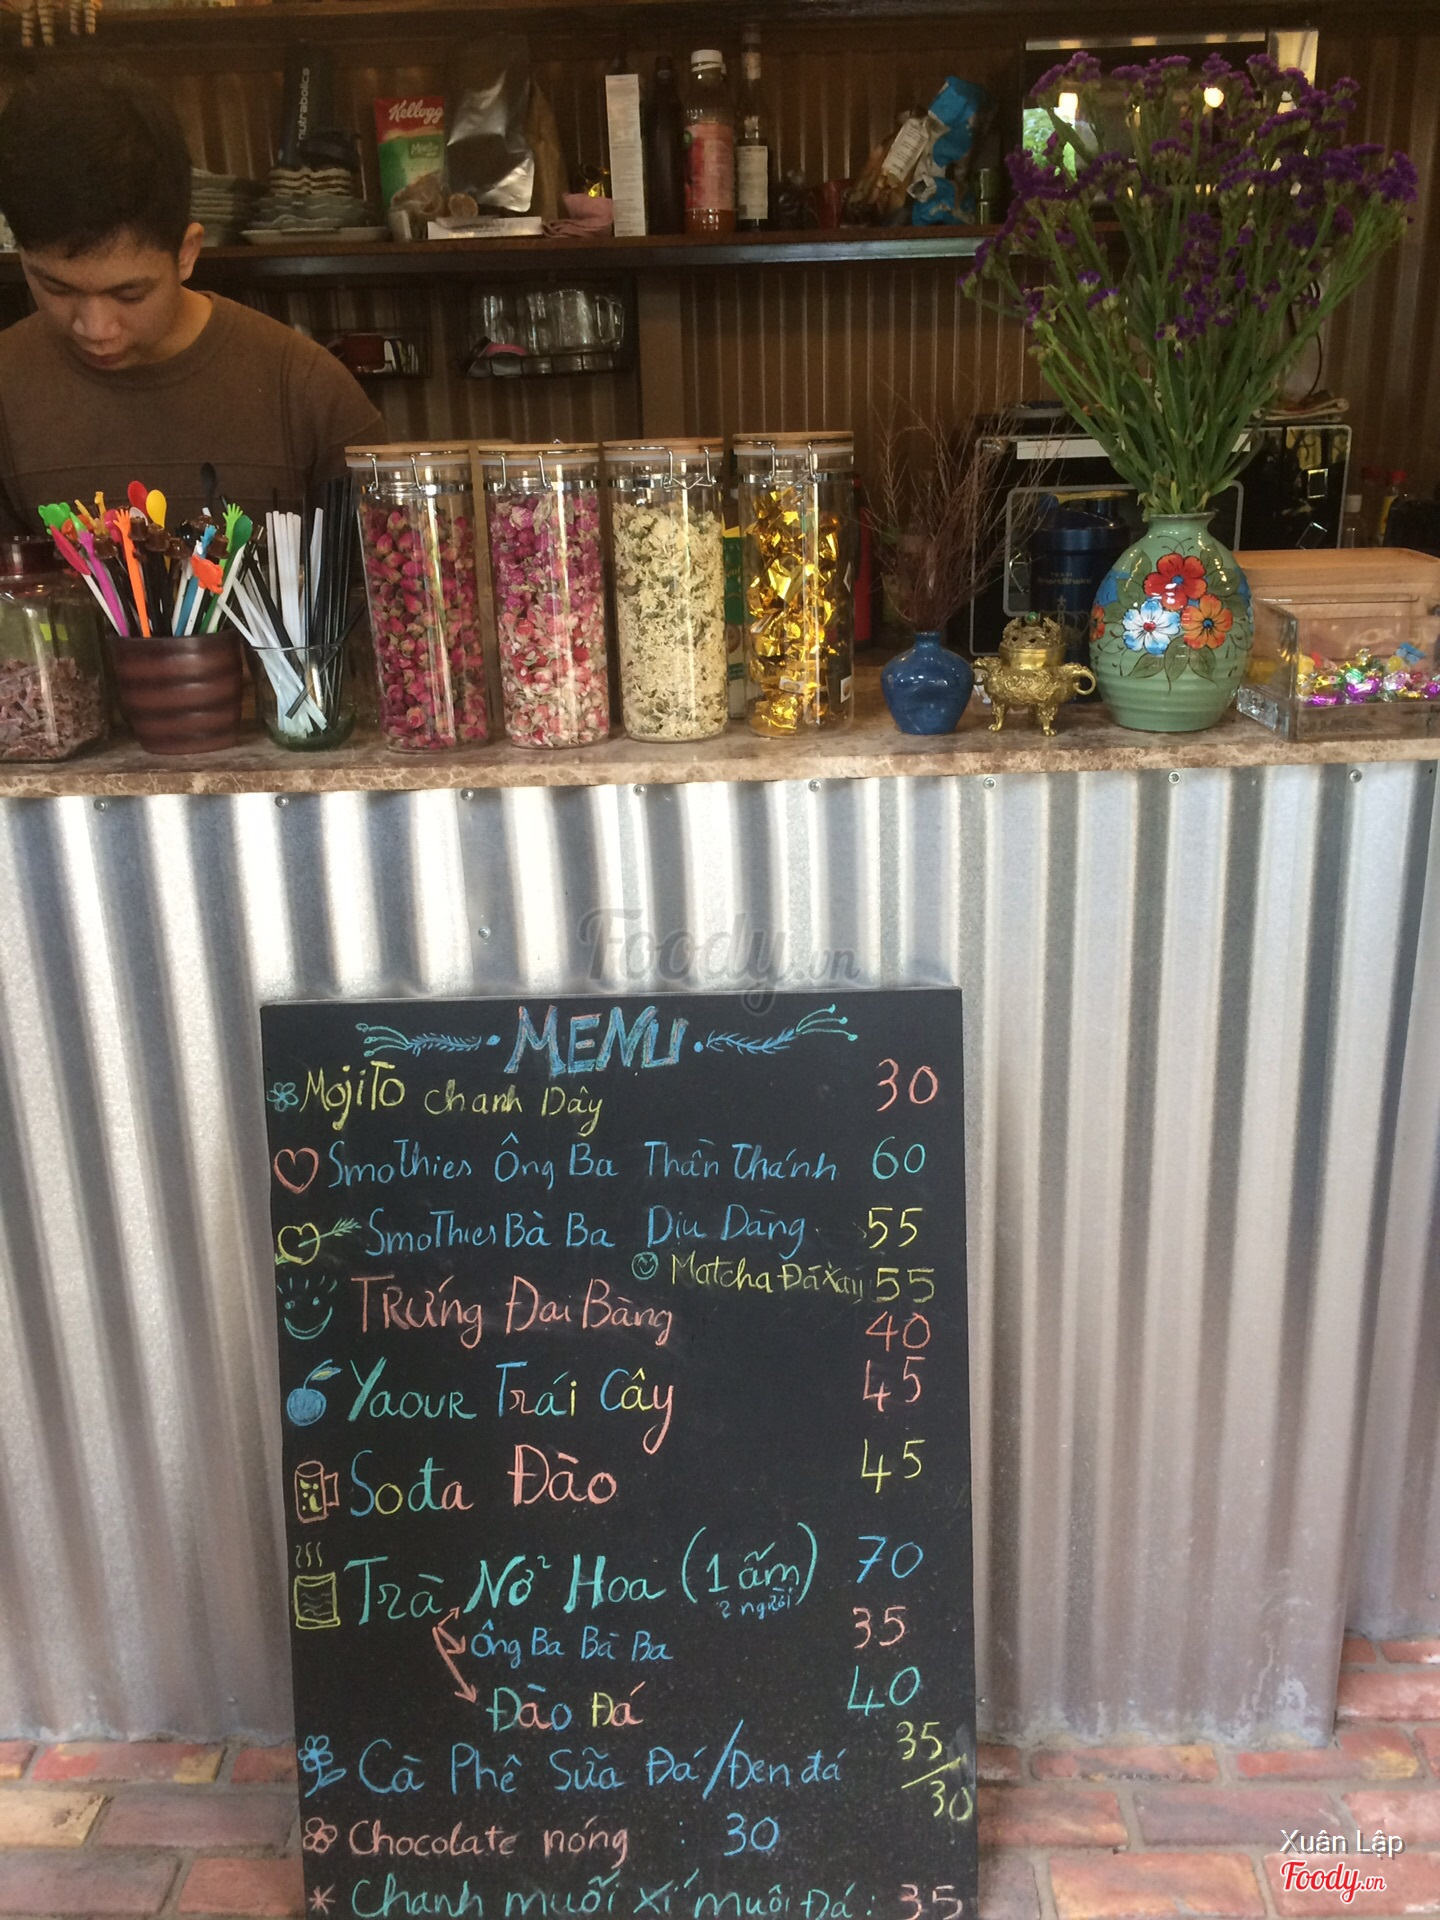 nutrabolics
Kellogg
Foody.vn
MENU
Mojito chanh Dây 30
Smothies Ông Ba Thần Thánh 60
Smothies Bà Ba Dịu Dàng. 55
Matcha Đá Xay 55
Trứng Đại Bàng 40
Yaour Trái Cây 45
Sođa Đào 45
Trà Nở Hoa (1 ấm) 70
2 người
Ông Ba Bà Ba 35
Đào Đá 40
Cà Phê Sữa Đá/Đen đá 35/30
Chocolate nóng : 30
Chanh muối xí muội Đá: 35
Xuân Lập
Foody.vn